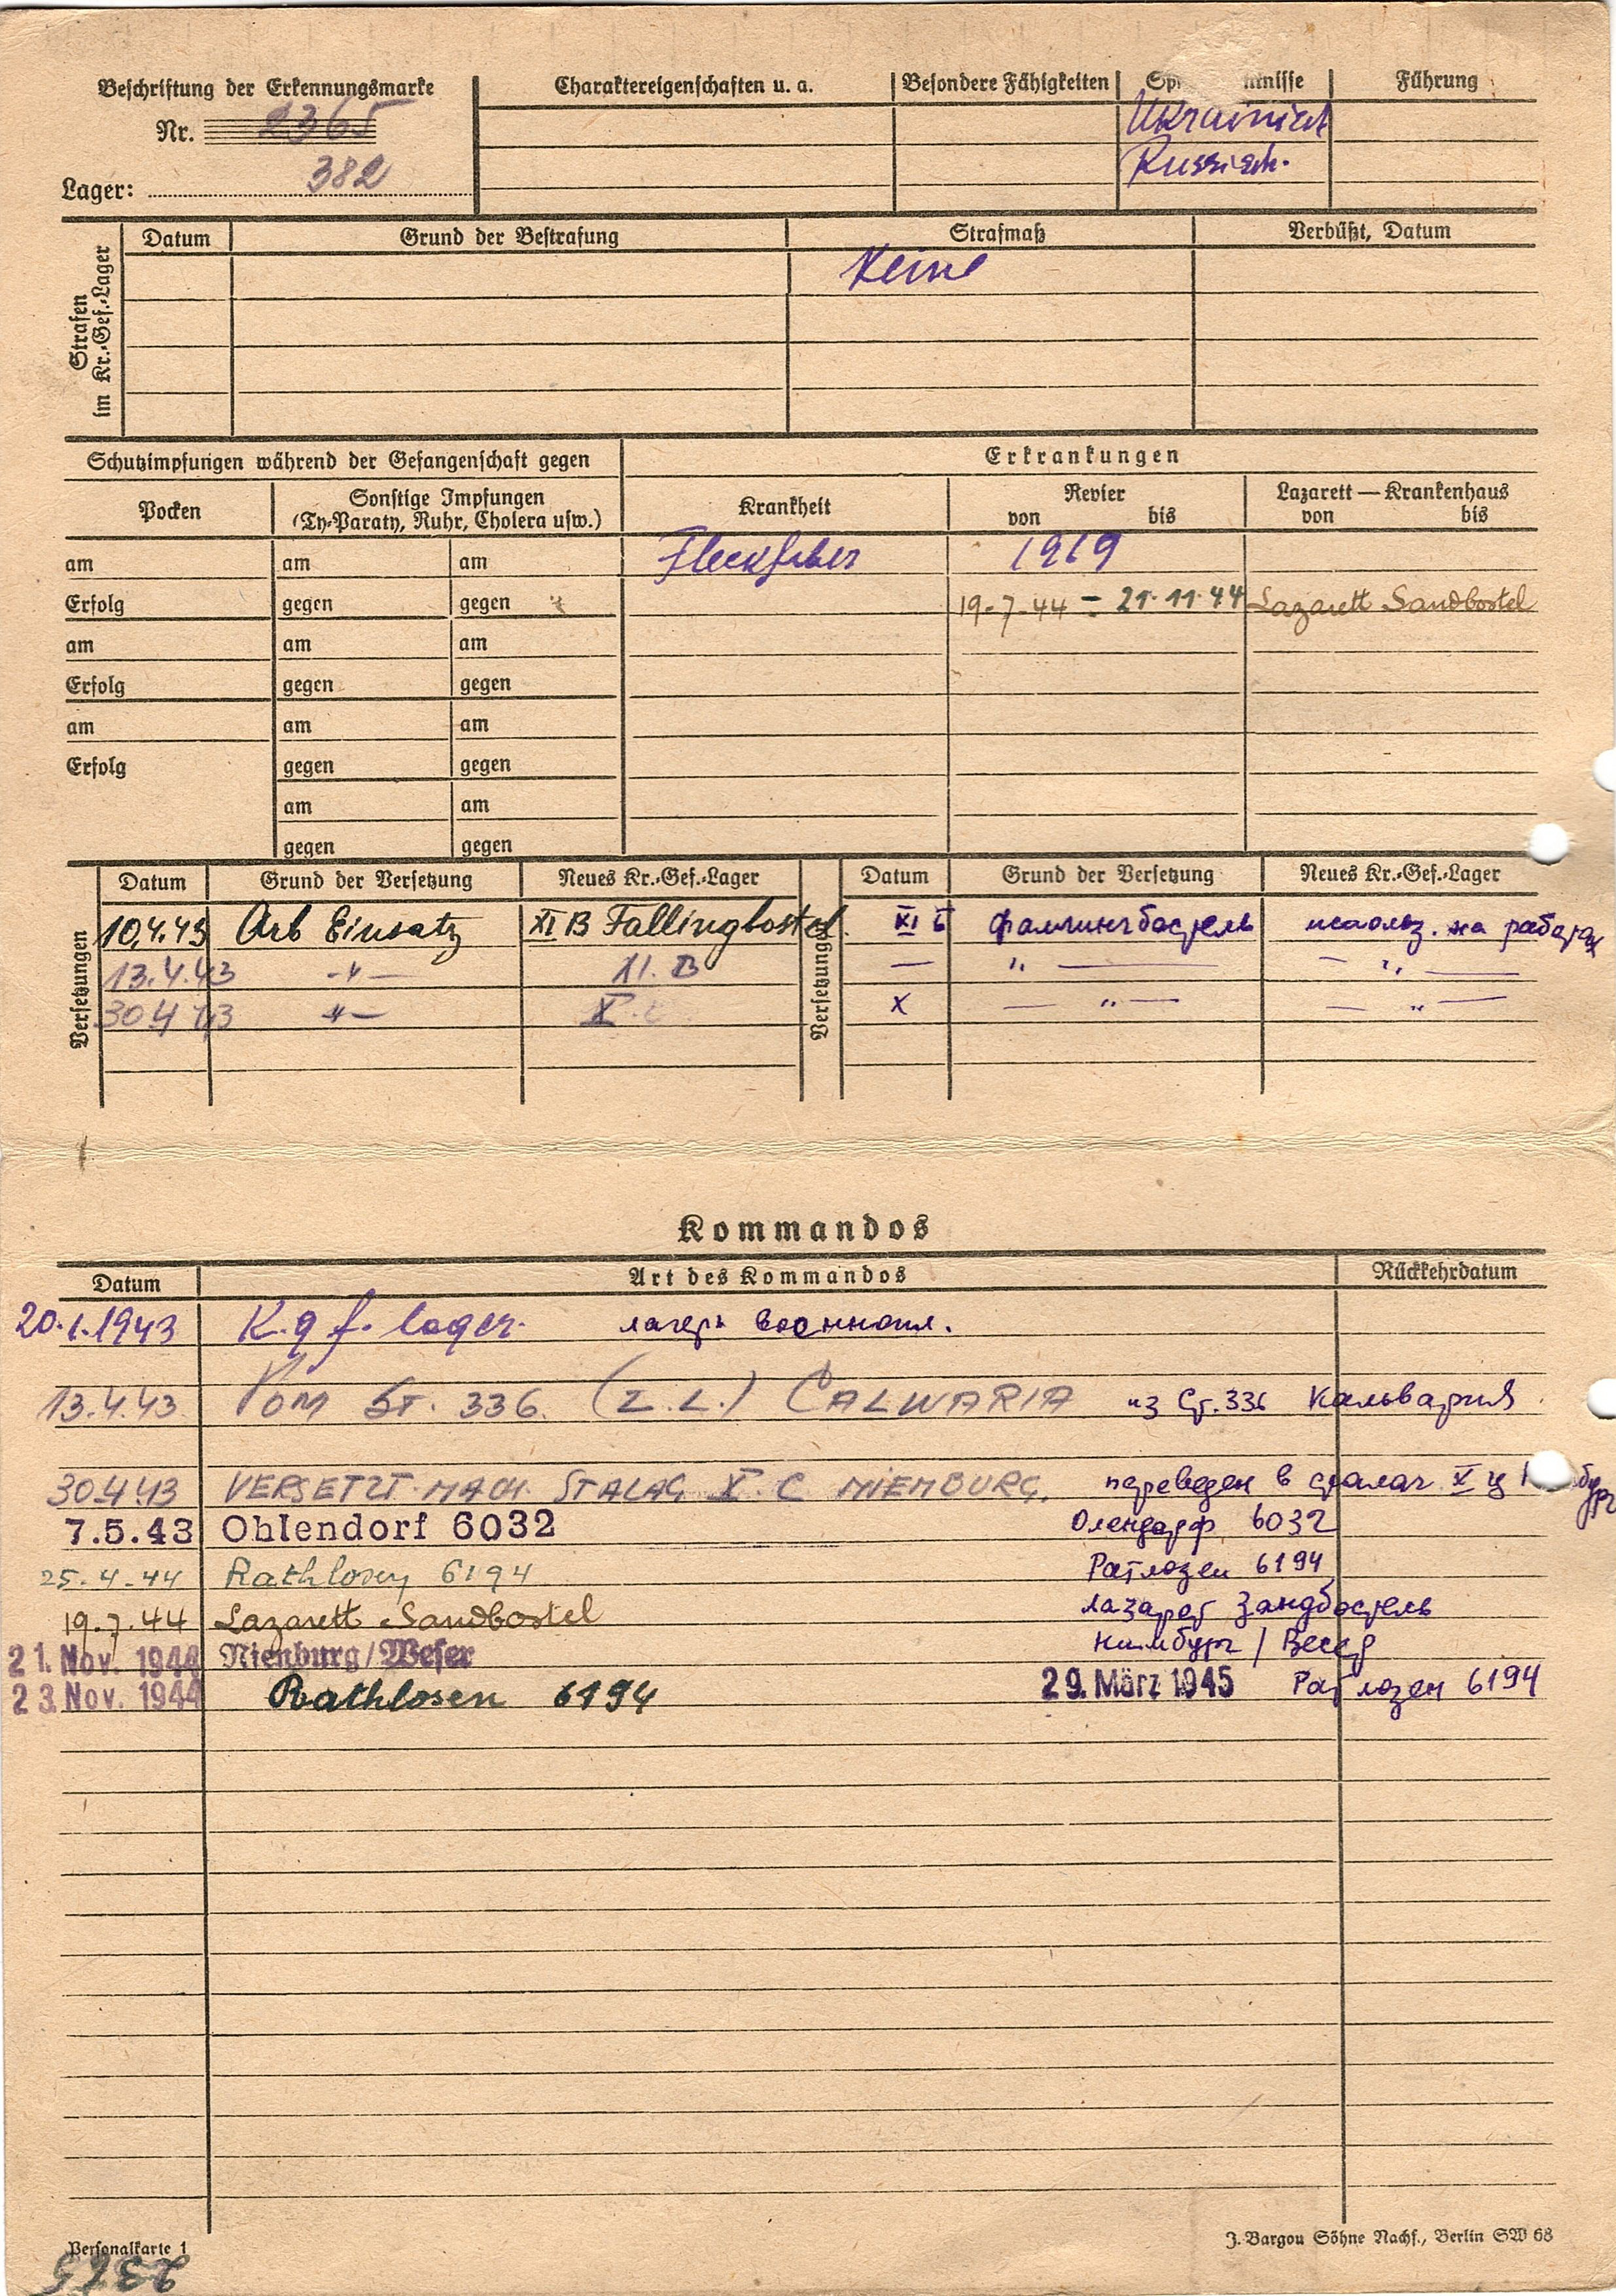 Beschriftung der Erkennungsmarke
Nr. 2365
Lager: 382
Charaktereigenschaften u. a.
Besondere Fähigkeiten
Führung
Ukrainisch
Russisch.
Strafen im Kr.-Gef.-Lager
Datum Grund der Bestrafung Strafmaß Verbüßt, Datum
Keine
Schutzimpfungen während der Gefangenschaft gegen
Erkrankungen
Pocken
Sonstige Impfungen
(Ty-Paraty, Ruhr, Cholera usw.)
Krankheit
Revier
von bis
Lazarett — Krankenhaus
von bis
am am am Fleckfieber 1919
Erfolg gegen gegen 19.7.44 = 21.11.44 Lazarett Sandbostel
am am am
Erfolg gegen gegen
am am am
Erfolg gegen gegen
am am
gegen gegen
Versetzungen
Datum Grund der Versetzung Neues Kr.-Gef.-Lager
10.4.43 Arb Einsatz XI B Fallingbostel.
13.4.43 -"- 11. B
30 4 43 -"- X. C
Versetzungen
Datum Grund der Versetzung Neues Kr.-Gef.-Lager
XI Б Фаллингбостель использ. на работах
— " — — " —
X — " — — " —
Kommandos
Datum Art des Kommandos Rückkehrdatum
20.1.1943 K.g f. lager. лагерь военнопл.
13.4.43 VOM ST. 336. (Z.L.) CALWARIA из Ст. 336 Кальвария
30 4 43 VERSETZT NACH STALAG X. C NIENBURG. переведен в сталаг X ц
7.5.43 Ohlendorf 6032 Олендорф 6032
25.4.44 Rathlosen 6194 Ратлозен 6194
19.7.44 Lazarett Sandbostel лазарет Зандбостель
21. Nov. 1944 Nienburg/Weser Нинбург / Везер
23. Nov. 1944 Rathlosen 6194 29. März 1945 Ратлозен 6194
Personalkarte 1
J. Bargou Söhne Nachf., Berlin SW 68
2365